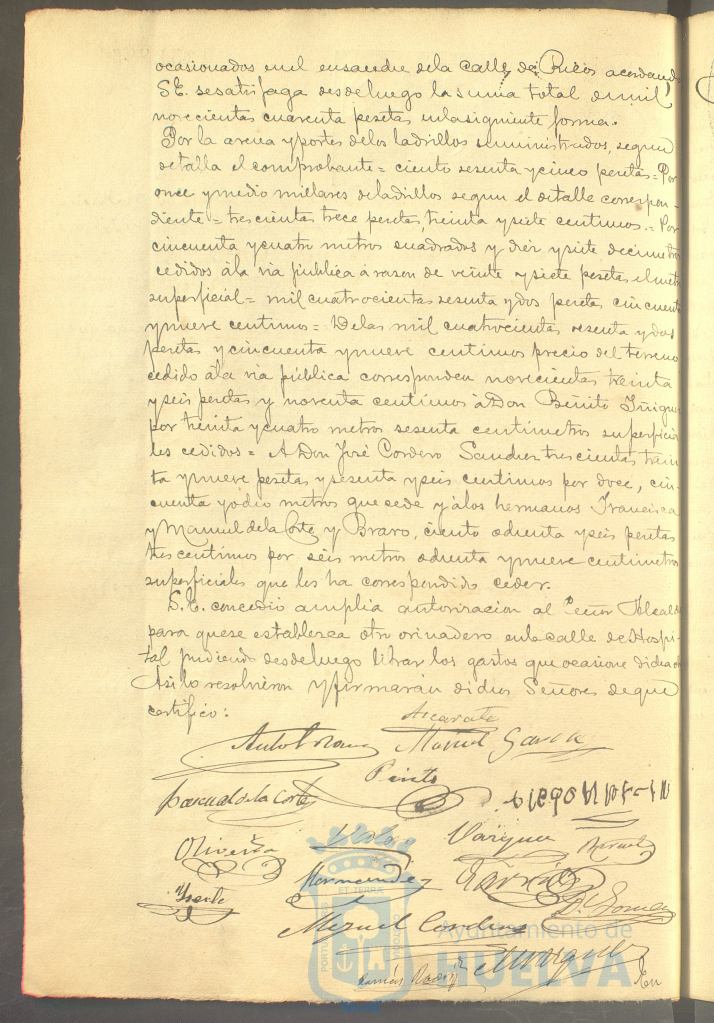 ocasionados en el ensanche de la calle de Ricos acordando
S.E. se satisfaga desde luego la suma total de mil
novecientas cuarenta pesetas en la siguiente forma.
Por la arena y portes de los ladrillos suministrados, segun
detalla el comprobante = ciento sesenta y cinco pesetas = Por
once y medio millares de ladrillos segun el detalle correspon-
diente = trescientas trece pesetas, treinta y siete centimos. = Por
cincuenta y cuatro metros cuadrados y diez y siete decimetros
cedidos á la via pública á razon de veinte y siete pesetas el metro
superficial = mil cuatrocientas sesenta y dos pesetas, cincuenta
y nueve centimos = De las mil cuatrocientas sesenta y dos
pesetas y cincuenta y nueve centimos precio del terreno
cedido á la via pública corresponden novecientas treinta
y seis pesetas y noventa centimos á Don Benito Iñiguez
por treinta y cuatro metros sesenta centímetros superficia
les cedidos = A Don José Cordero Sanchez trescientas trein
ta y nueve pesetas y sesenta y seis centimos por doce, cin-
cuenta y ocho metros que cede y á los hermanos Francisca
y Manuel de la Corte y Bravo, ciento ochenta y seis pesetas
tres centimos por seis metros ochenta y nueve centimetros
superficiales que les ha correspondido ceder.
S.E. concedio amplia autorizacion al Señor Alcalde
para que se establezca otro orinadero en la calle de Hospi-
tal pudiendo desde luego librar los gastos que ocasione dicha
Asi lo resolvieron y firmarán dichos Señores de que
certifico:
Azcarate
Manuel Garcia
Pinto
Pascual de la Corte
Oliveira
Vazquez
Hernandez
Garrido
D. Gomez
Miguel Cordero
Marquez
En
ET TERRÆ
PORTUS MARIS
CUSTODIA
Ayuntamiento de
HUELVA